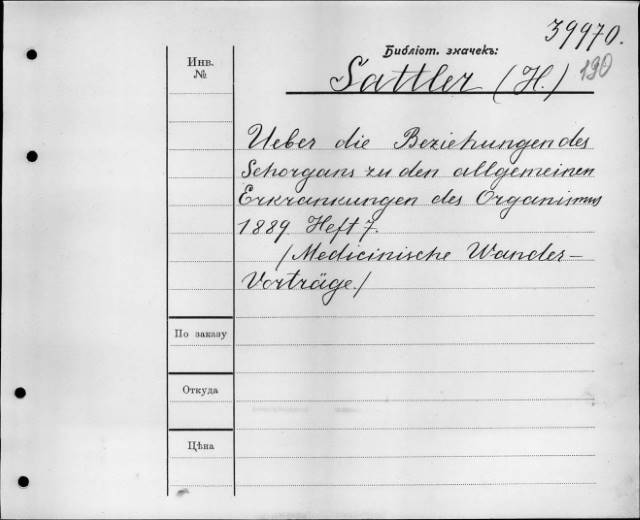 39970.
Библіот. значекъ:
Sattler (H.) 190
Инв.
№
Ueber die Beziehungen des
Sehorgans zu den allgemeinen
Erkrankungen des Organismus
1889 Heft 7.
/Medicinische Wander-
Vorträge./
По заказу
Откуда
Цѣна